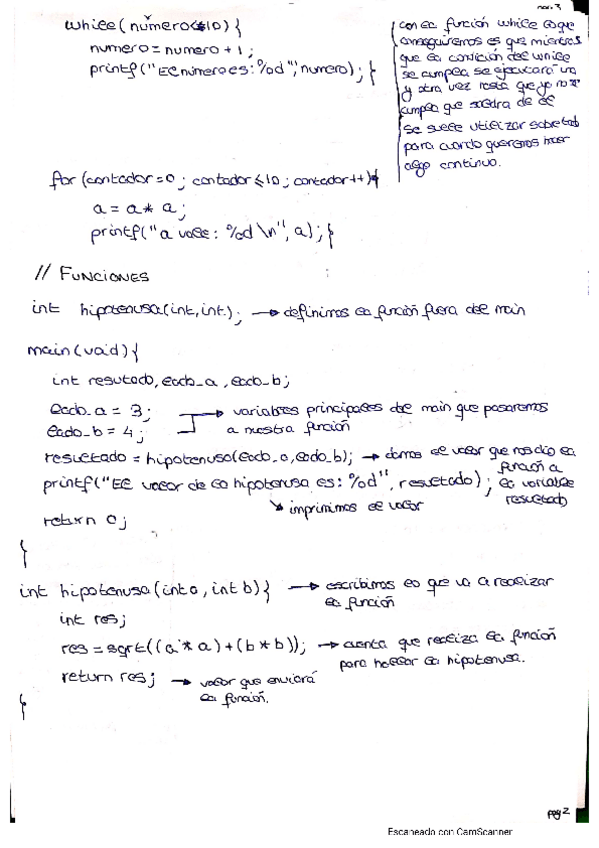 while(numero<=10){
numero=numero + 1;
printf("El numero es:%d", numero); }
con la función while lo que
conseguiremos es que mientras
que la condición del while
se cumpla se ejecutará una
y otra vez hasta que ya no se
cumpla que saldra de él
se suele utilizar sobre todo
para cuando queremos hacer
algo continuo.
for (contador=0; contador≤10; contador++){
a = a * a;
printf("a vale: %d \n", a); }
// FUNCIONES
int hipotenusa(int,int); → definimos la función fuera del main
main(void){
int resultado, lado_a, lado_b;
lado_a = 3; → variables principales del main que pasaremos
lado_b = 4; a nuestra función
resultado = hipotenusa(lado_a,lado_b); → damos el valor que nos dio la
función a
printf("El valor de la hipotenusa es: %d", resultado); la variable
resultado
→ imprimimos el valor
return 0;
}
int hipotenusa(int a, int b){ → escribimos lo que va a realizar
la función
int res;
res=sqrt((a*a)+(b*b)); → cuenta que realiza la función
para hallar la hipotenusa.
return res; → valor que enviará
la función.
}
pag 2
Escaneado con CamScanner